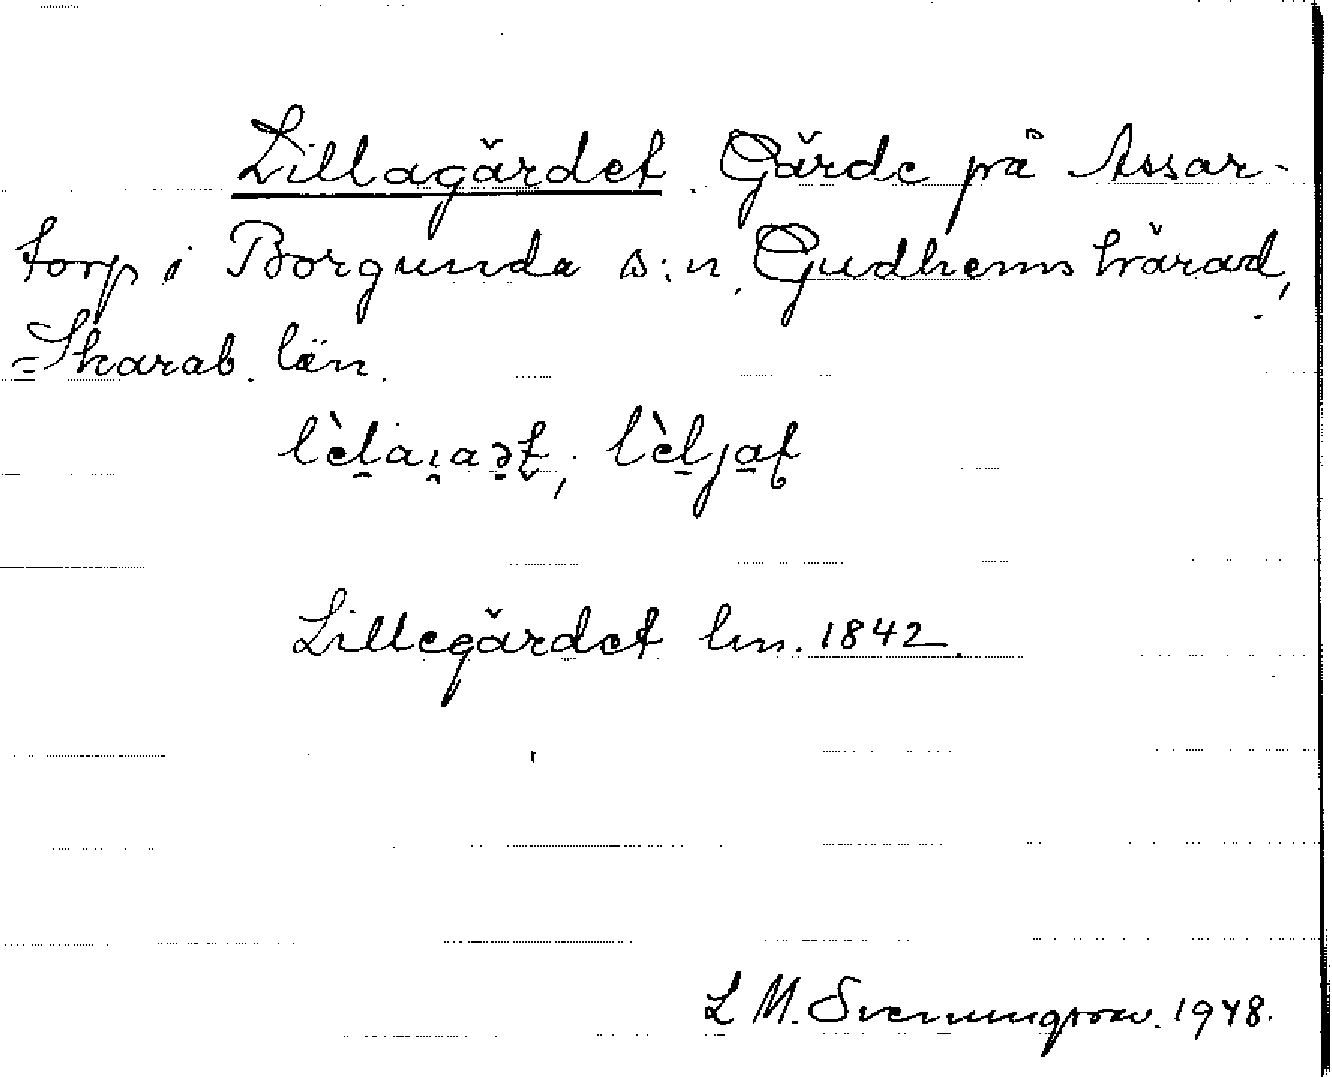 Lillagärdet. Gärde på Assar-
torp i Borgunda s:n, Gudhems härad,
Skarab. län.
Lillegärdet lm. 1842.
L M. Svenungsson. 1948.